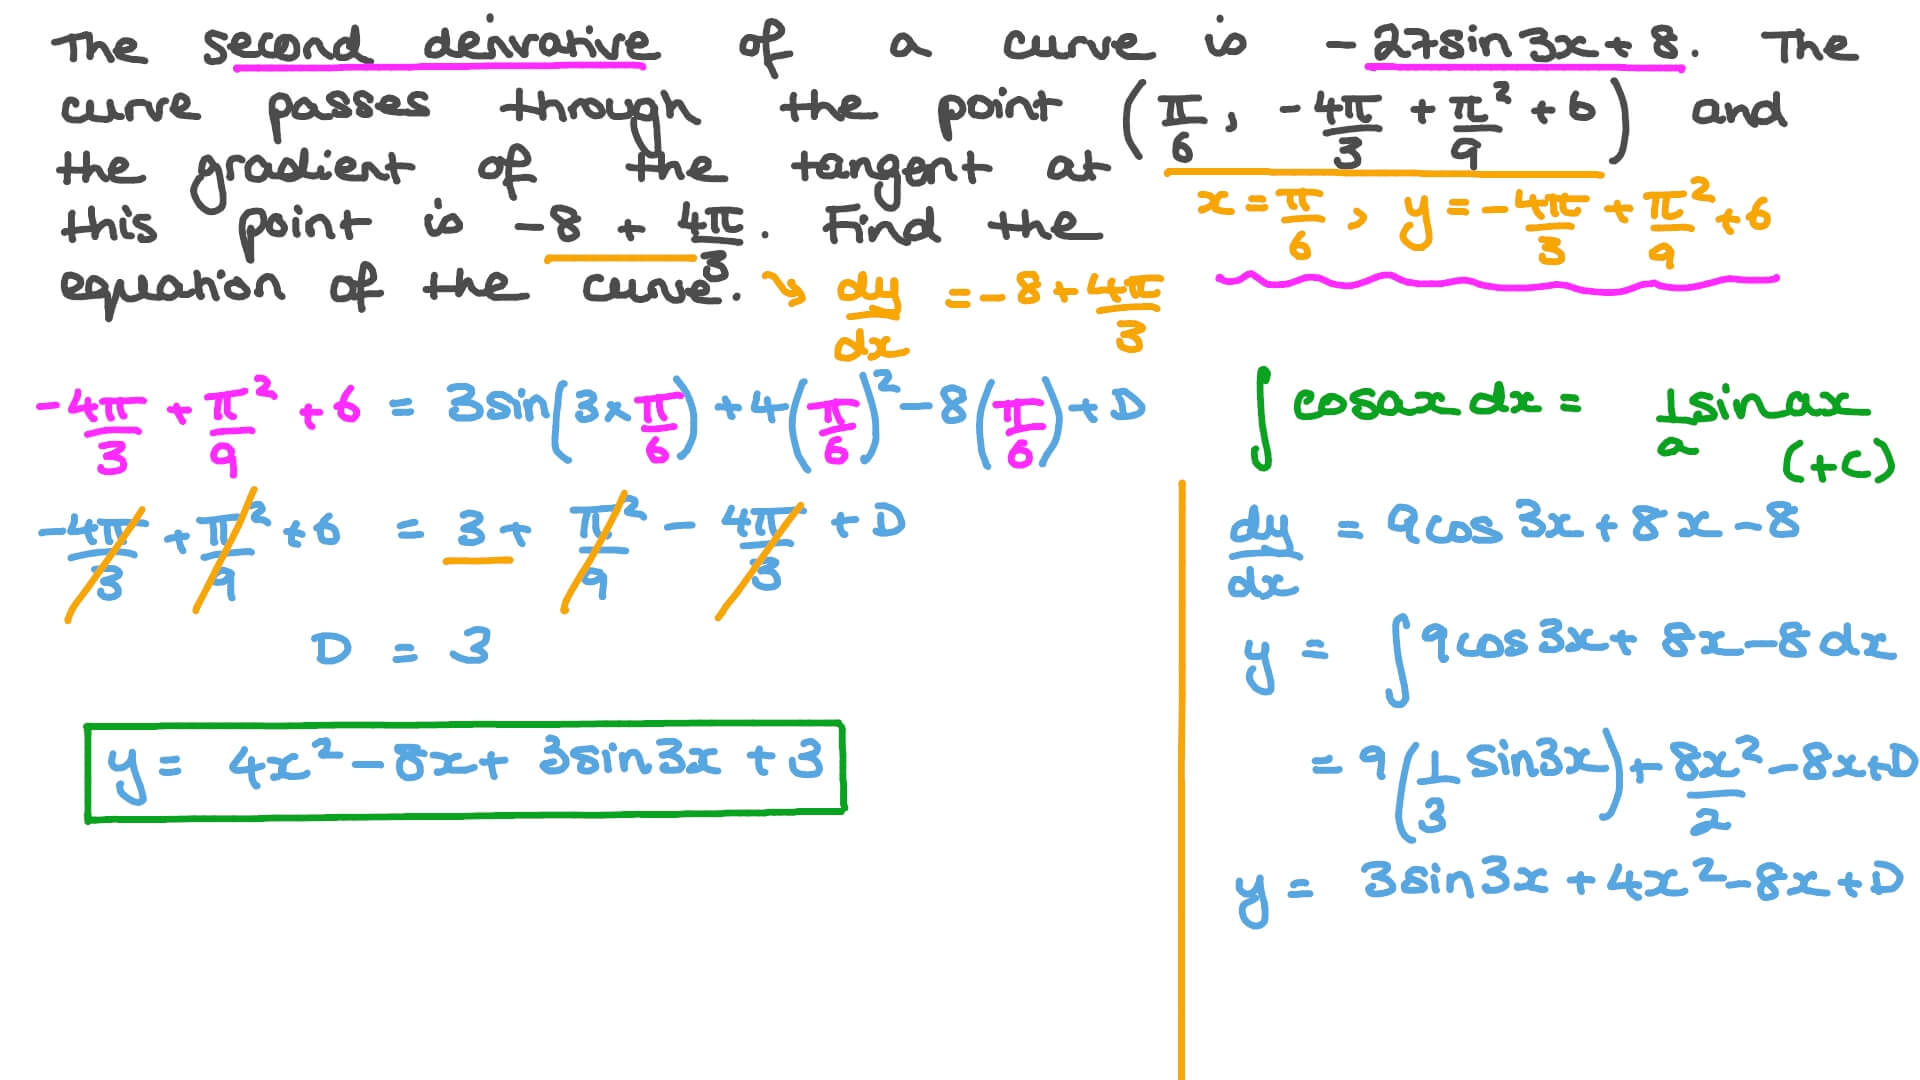 The second derivative of a curve is -27sin3x+8. The
curve passes through the point (π/6, -4π/3 + π²/9 + 6) and
the gradient of the tangent at
this point is -8 + 4π/3. Find the
equation of the curve.
x = π/6, y = -4π/3 + π²/9 + 6
dy/dx = -8 + 4π/3
-4π/3 + π²/9 + 6 = 3sin(3×π/6) + 4(π/6)² - 8(π/6) + D
-4π/3 + π²/9 + 6 = 3 + π²/9 - 4π/3 + D
D = 3
y = 4x² - 8x + 3sin3x + 3
∫cosax dx = 1/a sin ax
(+C)
dy/dx = 9cos 3x + 8x - 8
y = ∫9cos3x + 8x - 8 dx
= 9(1/3 sin3x) + 8x²/2 - 8x + D
y = 3sin3x + 4x² - 8x + D